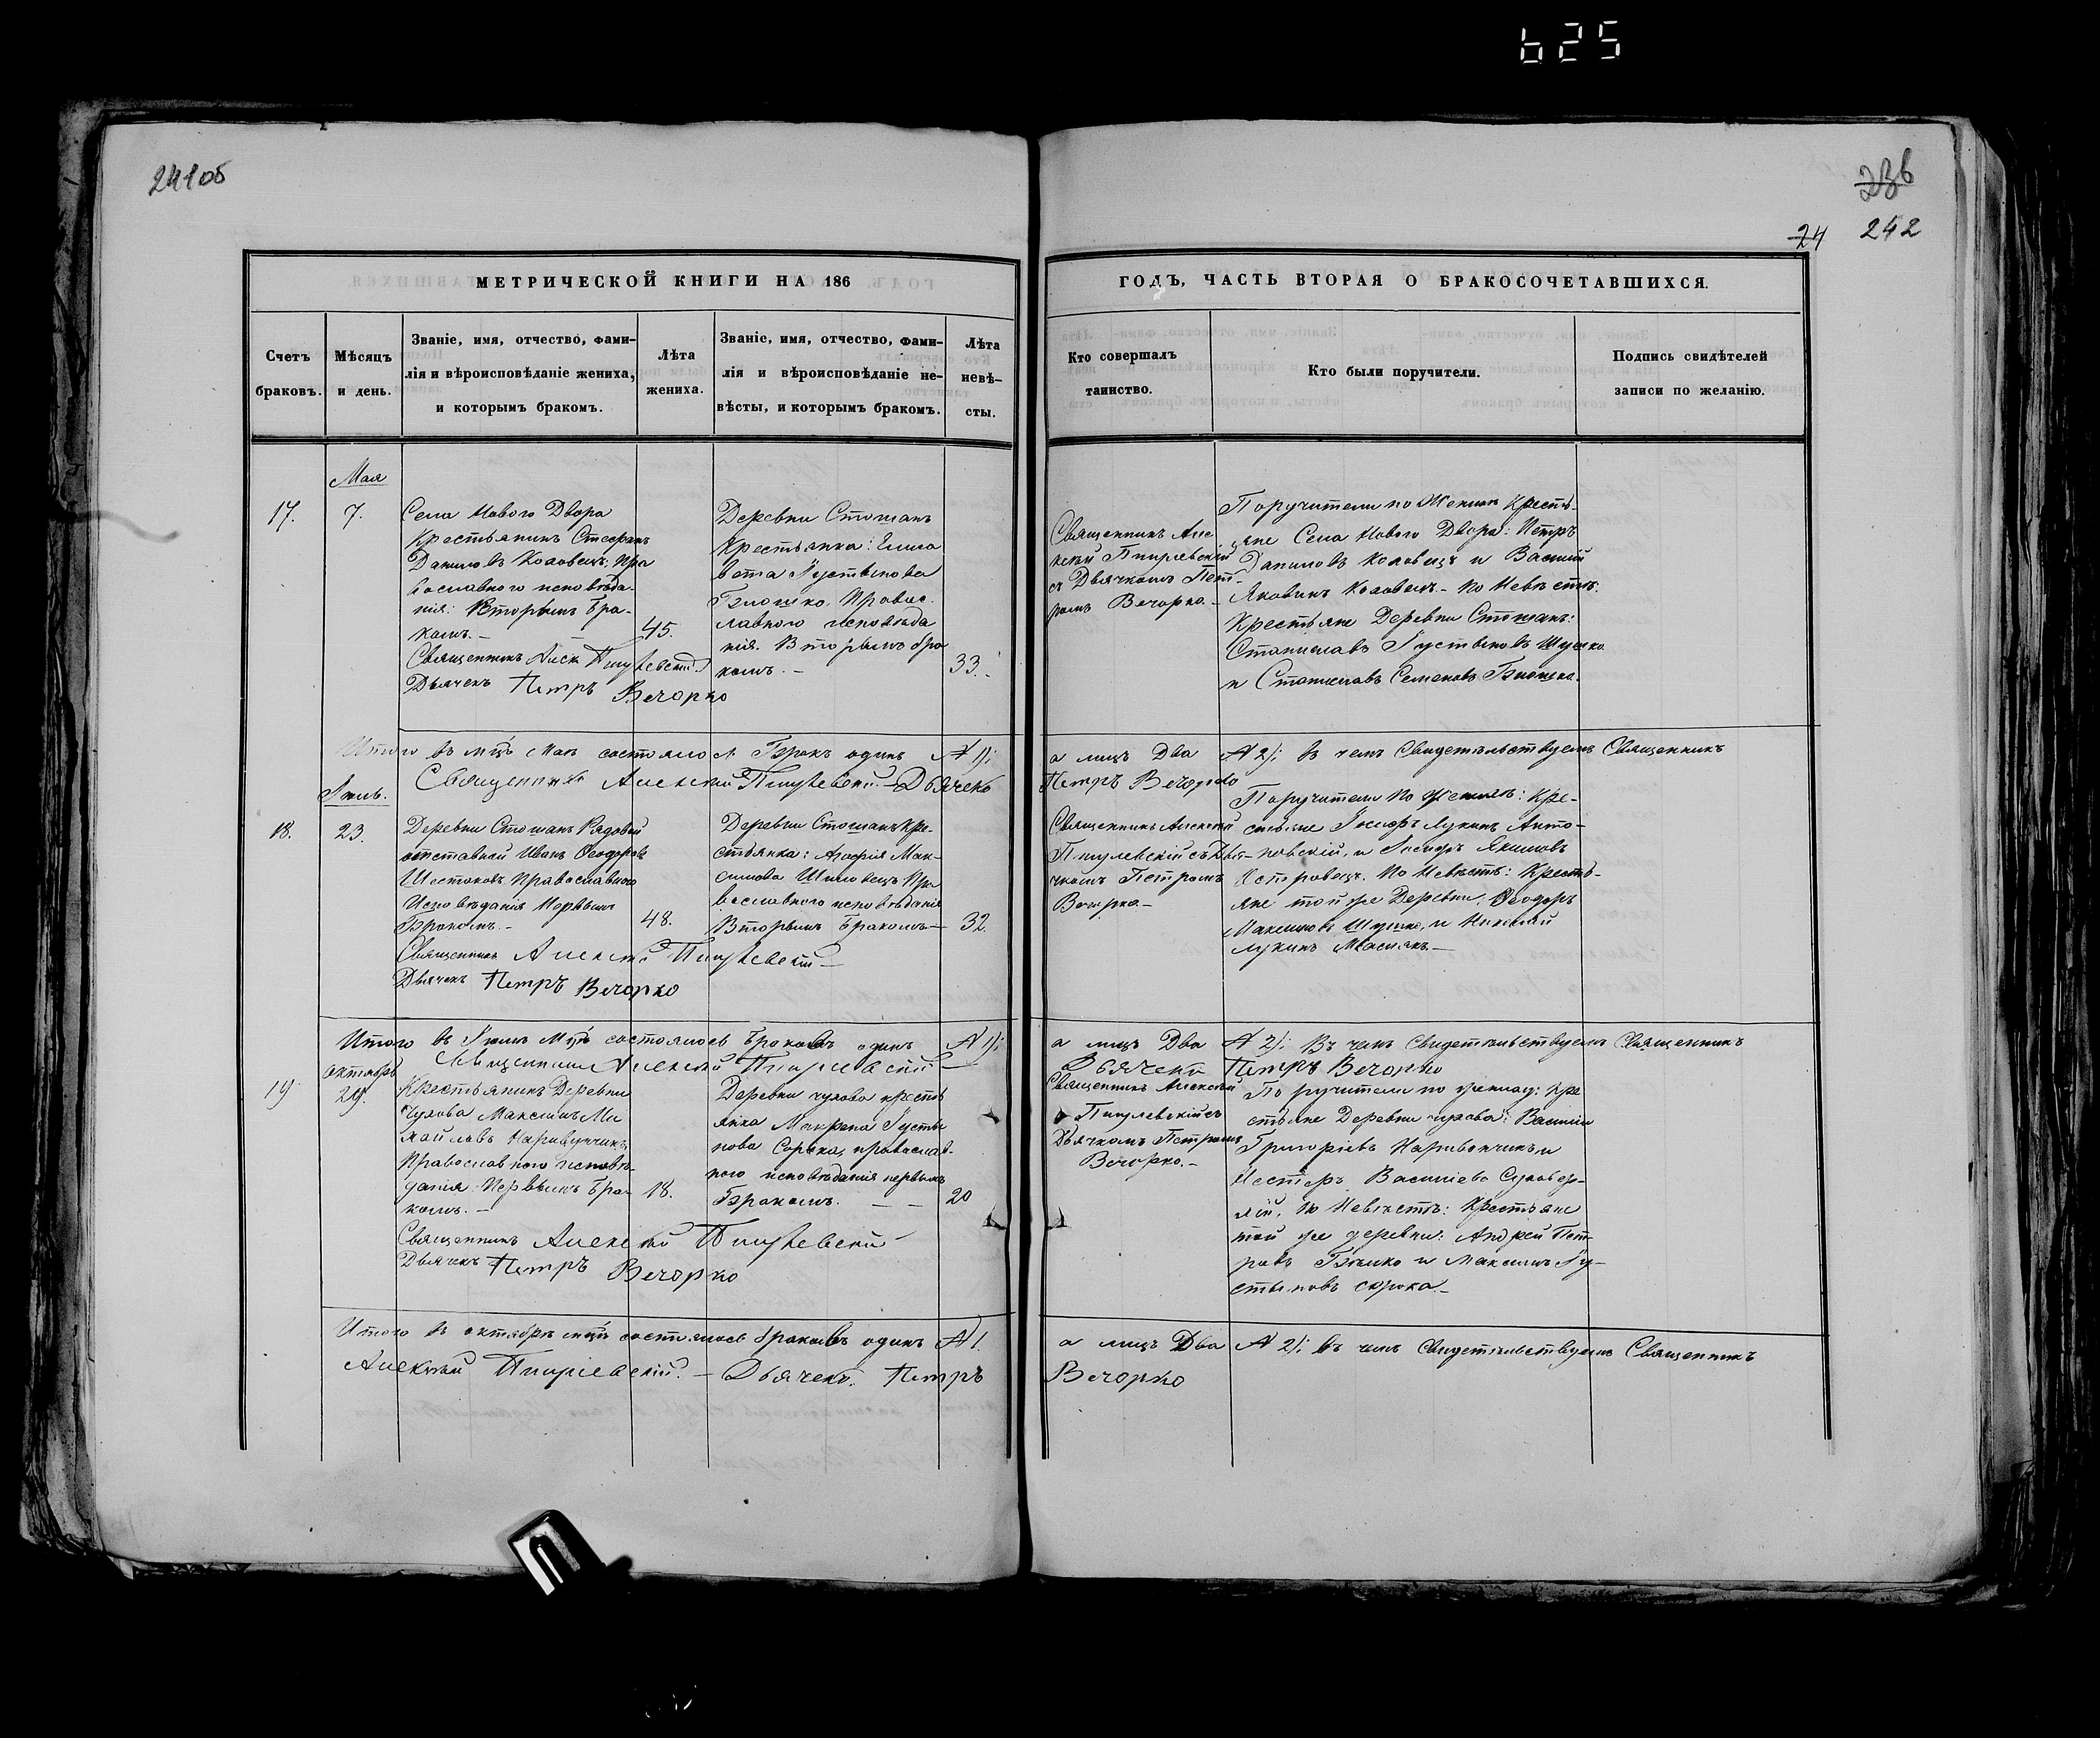 625
241об
236
24 242
МЕТРИЧЕСКОЙ КНИГИ НА 186
ГОДЪ, ЧАСТЬ ВТОРАЯ О БРАКОСОЧЕТАВШИХСЯ.
Счетъ
браковъ.
Мѣсяцъ
и день.
Званіе, имя, отчество, фами-
лія и вѣроисповѣданіе жениха,
и которымъ бракомъ.
Лѣта
жениха.
Званіе, имя, отчество, фами-
лія и вѣроисповѣданіе не-
вѣсты, и которымъ бракомъ.
Лѣта
невѣ-
сты.
Кто совершалъ
таинство.
Кто были поручители.
Подпись свидѣтелей
записи по желанію.
Мая
17.
7.
Села Нового Двора
Крестьянинъ Стефанъ
Даниловъ Коловецъ; Пра
вославного исповѣда-
нія: Вторымъ бра-
комъ.-
45.
Священникъ Алек. Пигулевскій
Дьячекъ Петръ Вечорко
Деревни Стошанъ
Крестьянка: Елиса
вета Іустинова
Правос.
лавного исповѣда
нія. Вторымъ бра
комъ.-
33.
Священникъ Але
ксѣй Пигулевскій
съ Дьячкомъ Пет-
ромъ Вечорко.-
Поручители по Женихѣ Кресть-
яне Села Нового Двора: Петръ
Даниловъ Коловецъ и Василій
Яковинъ Коловецъ.- По Невѣстѣ:
Крестьяне Деревни Стошанъ:
Станиславъ Іустиновъ Шушко
и Станиславъ Семеновъ
Итого въ мцѣ Маѣ состоялося Бракъ одинъ № 1);
а лицъ Два № 2); въ чемъ Свидетельствуемъ Священникъ
Священникъ Алексѣй Пигулевскій.- Дьячекъ
Петръ Вечорко
Іюль.
18.
23.
Деревни Стошанъ Рядовый
отставной Иванъ Ѳеодоровъ
Шестаковъ Православного
Исповѣданія Первымъ
Бракомъ.-
48.
Священникъ Алексѣй Пигулевскій-
Дьячекъ Петръ Вечорко
Деревни Стошанъ Кре-
стьянка: Агафія Мак-
симова Шиловецъ Пра
вославного исповѣданія
Вторымъ Бракомъ-
32.
Священникъ Алексѣй
Пигулевскій съ Дья-
чкомъ Петромъ
Вечорко-
Поручители По Женихѣ: Кре-
стьяне Іосифъ Лукинъ Анто-
новскій, и Іосифъ Якимовъ
По Невѣстѣ: Кресть-
яне той же Деревни, Ѳеодоръ
Максимовъ Шушко, и Николай
Лукинъ
Итого въ Іюлѣ Мцѣ состоялось Браковъ одинъ № 1);
а лицъ Два № 2); Въ чемъ Свидетельствуемъ Священникъ
Священникъ Алексѣй Пигулевскій-
Дьячекъ Петръ Вечорко
октябрь
19.
29.
Крестьянинъ Деревни
Чухова Максимъ Ми
хайловъ
Православного исповѣ-
данія: Первымъ Бра-
комъ.-
18.
Священникъ Алексѣй Пигулевскій-
Дьячекъ Петръ Вечорко
Деревни чухова кресть
янка Макрена Іусти
нова Сорока, православ-
ного исповѣданія первымъ
Бракомъ.- -
20
Священникъ Алексѣй
Пигулевскій съ
Дьячкомъ Петромъ
Вечорко.-
Поручители по женихѣ: Кре
стьяне Деревни чухова: Василій
Григоріевъ и
Нестеръ Василіевъ
По Невѣстѣ: Крестьяне
той же деревни: Андрей Пет-
ровъ и Максимъ Іу-
стиновъ сорока.-
Итого въ октябрѣ мцѣ состоялось браковъ одинъ № 1.
а лицъ Два № 2); въ чемъ Свидетельствуемъ Священникъ
Алексѣй Пигулевскій.- Дьячекъ. Петръ
Вечорко